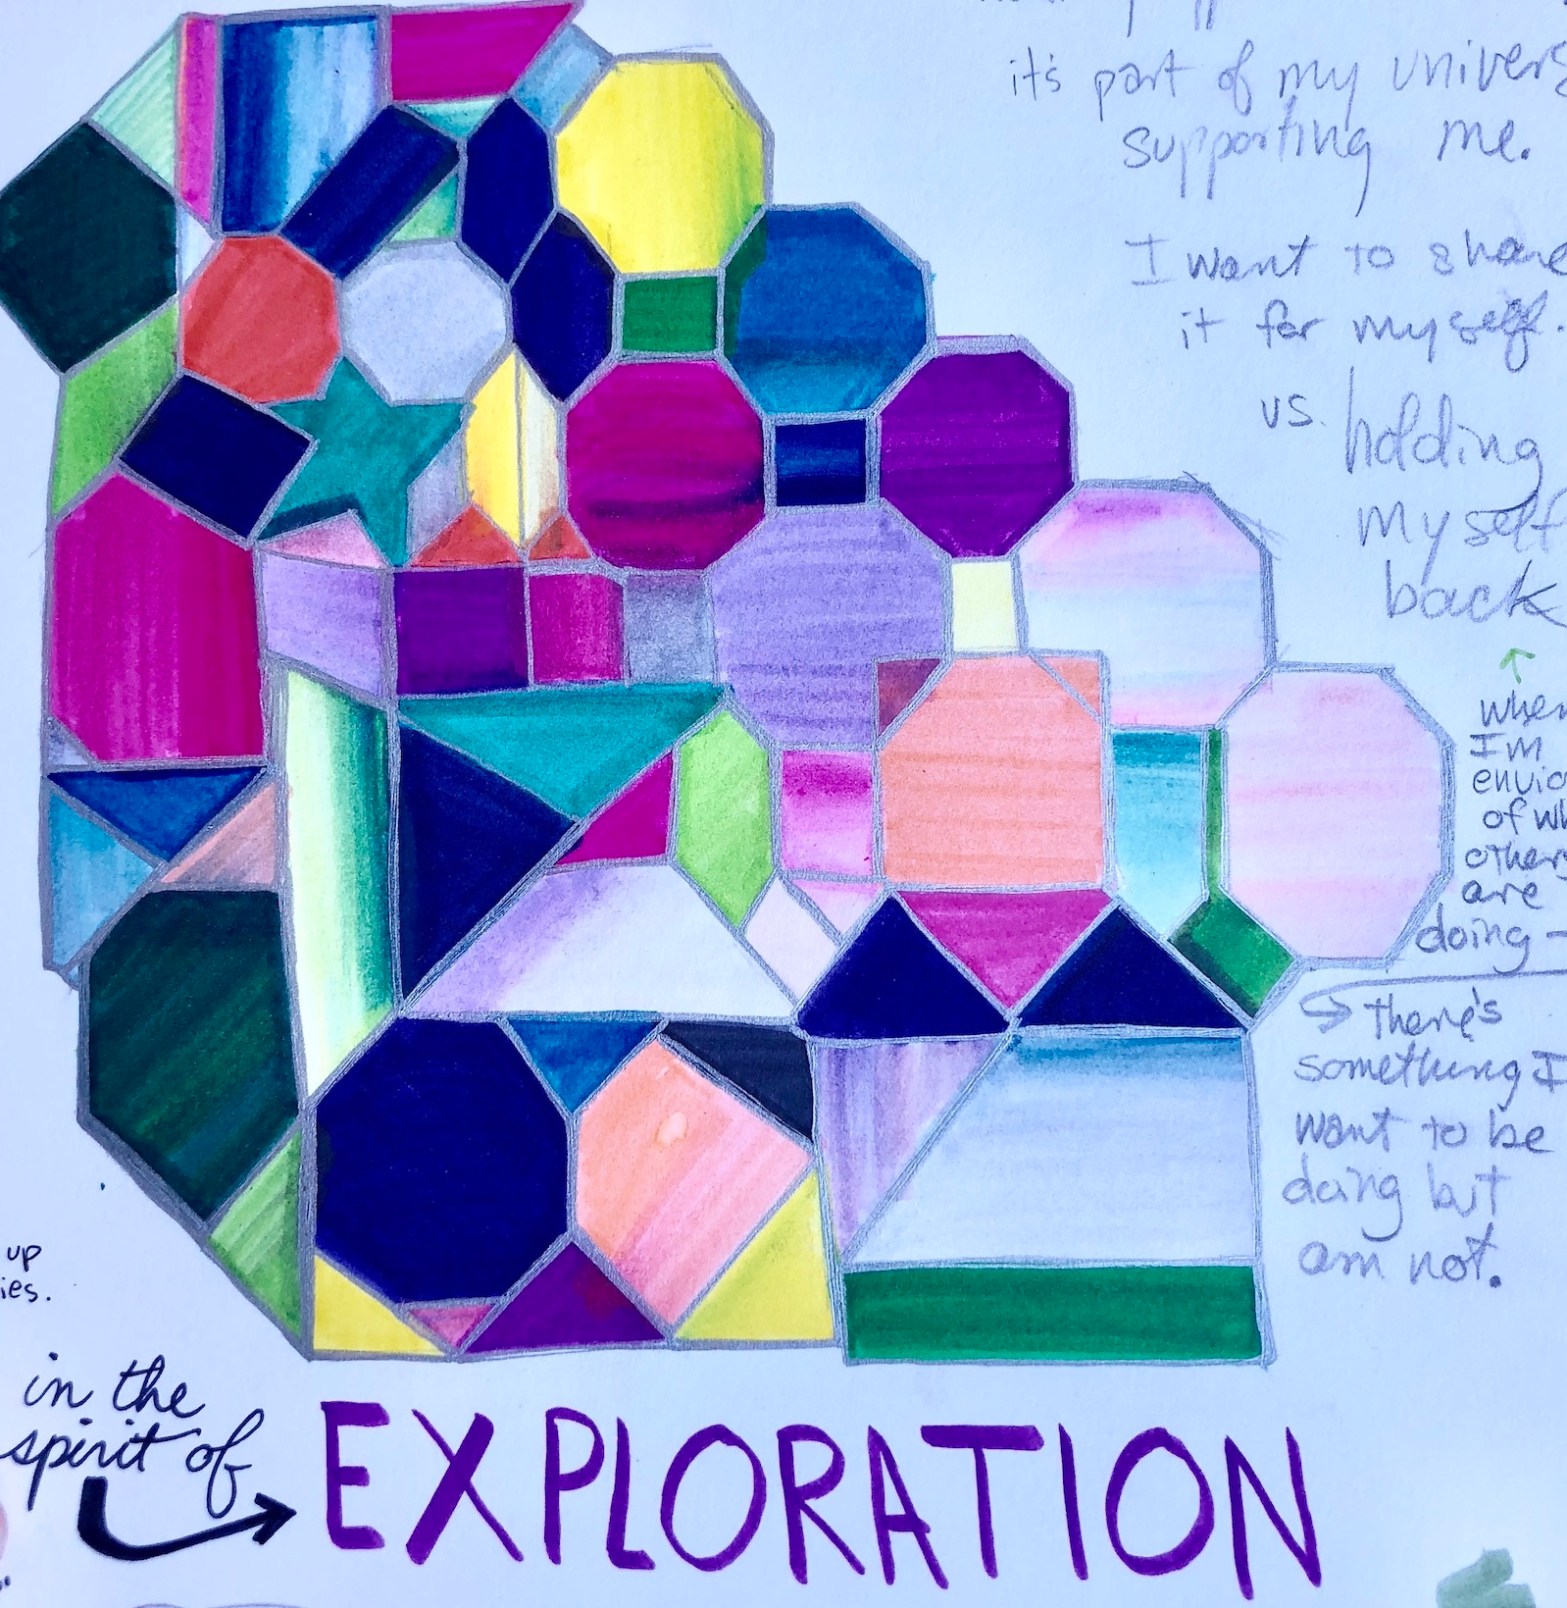 it's part of my
supporting me.
I want to share
it for myself.
vs. holding
myself
back
when
I'm
of
others
are
doing –
There's
something I
want to be
doing but
am not.
up
in the
spirit of
EXPLORATION